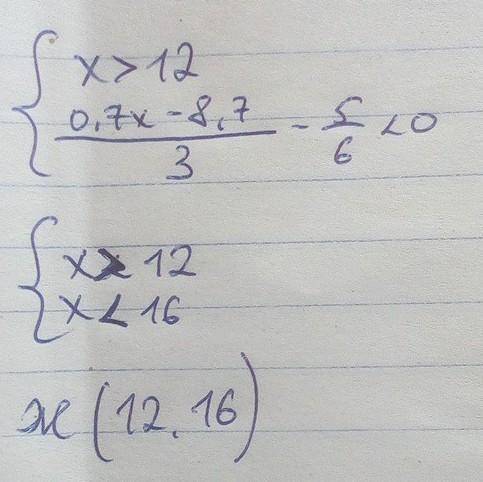 x > 12
0,7x - 8,7 / 3 - 5/6 < 0
x > 12
x < 16
x (12, 16)